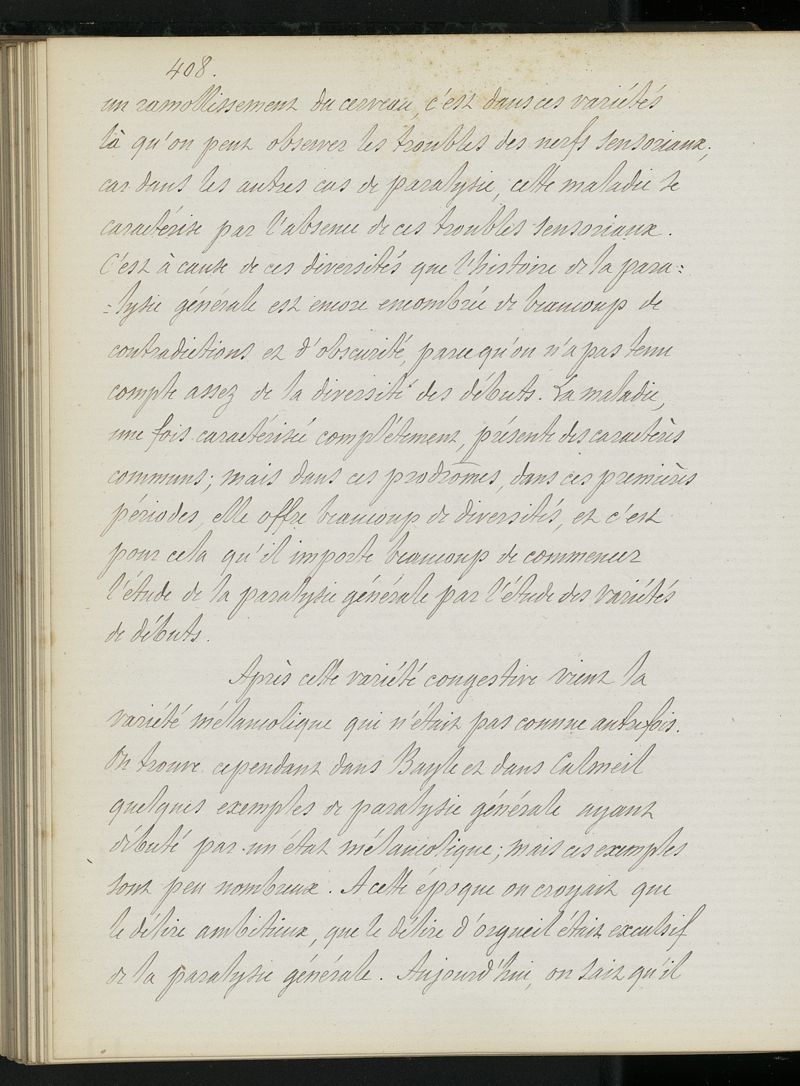 408.
un ramollissement du cerveau, c'est dans ces variétés
là qu'on peut observer les troubles des nerfs sensoriaux;
car dans les autres cas de paralysie, cette maladie se
caractérise par l'absence de ces troubles sensoriaux.
C'est à cause de ces diversités que l'histoire de la para=
=lysie générale est encore encombrée de beaucoup de
contradictions et d'obscurité, parce qu'on n'a pas tenu
compte assez de la diversité des débuts. La maladie,
une fois caractérisée complètement, présente des caractères
communs; mais dans ces prodrômes, dans ces premières
périodes, elle offre beaucoup de diversités, et c'est
pour cela qu'il importe beaucoup de commencer
l'étude de la paralysie générale par l'étude des variétés
de débuts.
Après cette variété congestive vient la
variété mélancolique qui n'était pas connue autrefois.
On trouve cependant dans Bayle et dans Calmeil
quelques exemples de paralysie générale ayant
débuté par un état mélancolique; mais ces exemples
sont peu nombreux. A cette époque on croyait que
le délire ambitieux, que le délire d'orgueil était exculsif
de la paralysie générale. Aujourd'hui, on sait qu'il